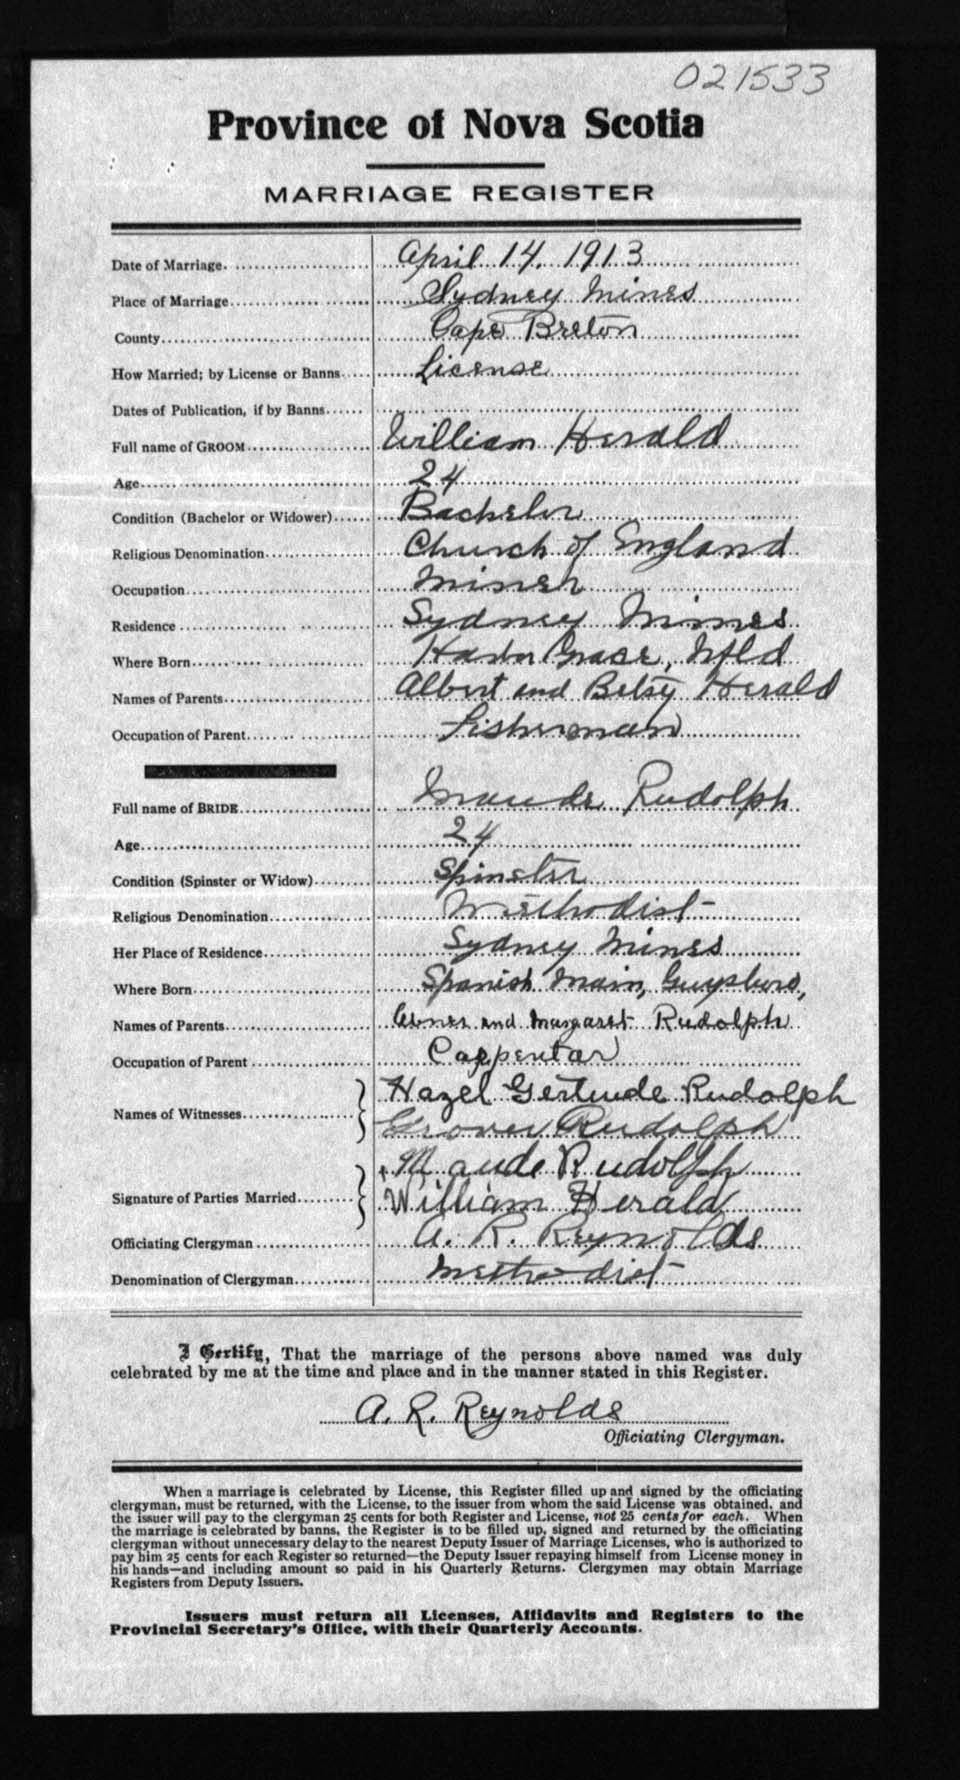 021533
Province of Nova Scotia
MARRIAGE REGISTER
Date of Marriage. April 14. 1913
Place of Marriage Sydney Mines
County Cape Breton
How Married; by License or Banns License
Dates of Publication, if by Banns
Full name of GROOM William Herald
Age 24
Condition (Bachelor or Widower) Bachelor
Religious Denomination Church of England
Occupation Miner
Residence Sydney Mines
Where Born Harbor Grace, Nfld
Names of Parents Albert and Betsy Herald
Occupation of Parent Fisherman
Full name of BRIDE Maude Rudolph
Age 24
Condition (Spinster or Widow) Spinster
Religious Denomination Methodist
Her Place of Residence Sydney Mines
Where Born Spanish Main, Guysboro,
Names of Parents Abner and Margaret Rudolph
Occupation of Parent Carpentar
Names of Witnesses Hazel Gertrude Rudolph
Grover Rudolph
Maude Rudolph
Signature of Parties Married William Herald
Officiating Clergyman A. R. Reynolds
Denomination of Clergyman Methodist
I Certify, That the marriage of the persons above named was duly
celebrated by me at the time and place and in the manner stated in this Register.
A. R. Reynolds
Officiating Clergyman.
When a marriage is celebrated by License, this Register filled up and signed by the officiating
clergyman, must be returned, with the License, to the issuer from whom the said License was obtained, and
the issuer will pay to the clergyman 25 cents for both Register and License, not 25 cents for each. When
the marriage is celebrated by banns, the Register is to be filled up, signed and returned by the officiating
clergyman without unnecessary delay to the nearest Deputy Issuer of Marriage Licenses, who is authorized to
pay him 25 cents for each Register so returned—the Deputy Issuer repaying himself from License money in
his hands—and including amount so paid in his Quarterly Returns. Clergymen may obtain Marriage
Registers from Deputy Issuers.
Issuers must return all Licenses, Affidavits and Registers to the
Provincial Secretary's Office, with their Quarterly Accounts.